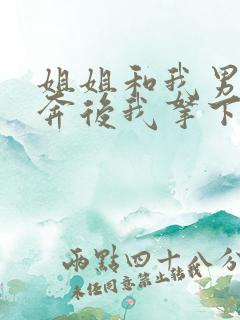 姐姐和我男
奔後我拿下
兩點四十八分
未經同意禁止轉載